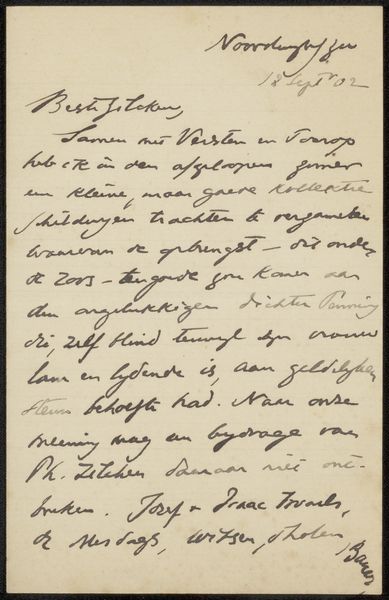 Noordwijk a/zee
18 Sept 02
Beste Zilcken,
Samen met Versten en Toorop
heb ik in den afgeloopen zomer
een kleine, maar goede kollektie
schilderijen trachten te verzamelen
waarvan de opbrengst – dit onder
de roos – ten goede zou komen aan
den ongelukkigen dichter Penning
die, zelf blind terwijl zijn vrouw
lam en lijdende is, aan geldelijken
steun behoefte had. Naar onze
meening mag een bijdrage van
Ph. Zilcken daaraan niet ont-
breken. Jozef & Isaac Israels,
de Mesdags, Witsen, Tholen
Bauer,